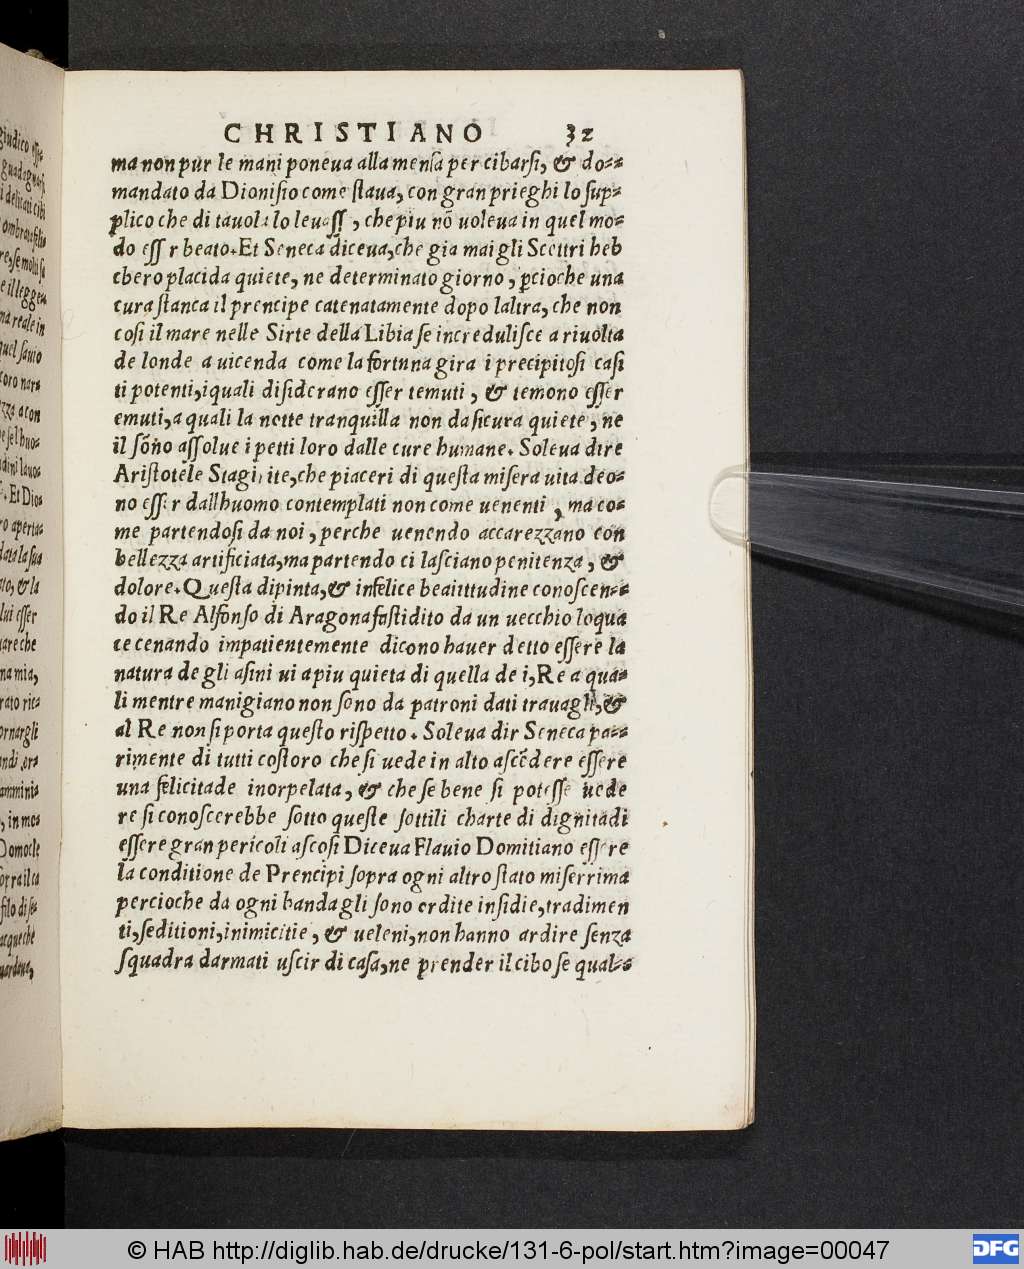 CHRISTIANO 32
ma non pur le mani poneua alla menſa per cibarſi, & do-
mandato da Dioniſio come ſtaua, con gran prieghi lo ſup-
plico che di tauola lo leuaſſ, che piu nõ uoleua in quel mo-
do eſſ r beato. Et Seneca diceua, che gia mai gli Scettri heb
bero placida quiete, ne determinato giorno, ꝑcioche una
cura ſtanca il prencipe catenatamente dopo laltra, che non
coſi il mare nelle Sirte della Libia ſe incrudeliſce a riuolta
de londe a uicenda come la fortuna gira i precipitoſi caſi
ti potenti, i quali diſiderano eſſer temuti, & temono eſſer
emuti, a quali la notte tranquilla non da ſicura quiete, ne
il ſõno aſſolue i petti loro dalle cure humane. Soleua dire
Ariſtotele Stagirite, che piaceri di queſta miſera uita deo-
no eſſer dallhuomo contemplati non come uenenti, ma co-
me partendoſi da noi, perche uenendo accarezzano con
bellezza artificiata, ma partendo ci laſciano penitenza, &
dolore. Queſta dipinta, & infelice beatittudine conoſcen-
do il Re Alfonſo di Aragona faſtidito da un uecchio loqua
ce cenando impatientemente dicono hauer detto eſſere la
natura de gli aſini ui a piu quieta di quella de i, Re a qua-
li mentre manigiano non ſono da patroni dati trauagli, &
al Re non ſi porta queſto riſpetto. Soleua dir Seneca pa-
rimente di tutti coſtoro che ſi uede in alto aſcẽdere eſſere
una felicitade inorpelata, & che ſe bene ſi poteſſe uede
re ſi conoſcerebbe ſotto queſte ſottili charte di dignitadi
eſſere gran pericoli aſcoſi Diceua Flauio Domitiano eſſere
la conditione de Prencipi ſopra ogni altro ſtato miſerrima
percioche da ogni banda gli ſono ordite inſidie, tradimen
ti, ſeditioni, inimicitie, & ueleni, non hanno ardire ſenza
ſquadra darmati uſcir di caſa, ne prender il cibo ſe qual-
© HAB http://diglib.hab.de/drucke/131-6-pol/start.htm?image=00047
DFG